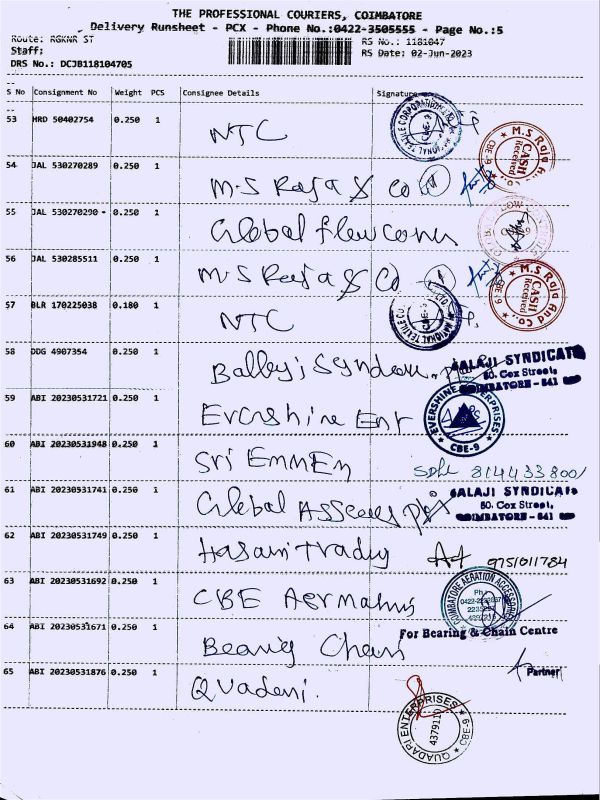 THE PROFESSIONAL COURIERS, COIMBATORE
Delivery Runsheet - PCX - Phone No.:0422-3505555 - Page No.:5
Route: RGKNR ST RS No.: 1181047
Staff: RS Date: 02-Jun-2023
DRS No.: DCJB118104705
S No Consignment No Weight PCS Consignee Details Signature
53 HRD 50402754 0.250 1 NTC
CBE-9
M.S Raja And Co., CASH Received CBE-9
54 JAL 530270289 0.250 1 M.S Raja & Co
55 JAL 530270290 0.250 1 Global
56 JAL 530285511 0.250 1 M.S Raja & Co
M.S Raja And Co., CASH Received CBE-9
57 BLR 170225038 0.180 1 NTC
NATIONAL TEXTILE CBE-9
58 DDG 4907354 0.250 1
BALAJI SYNDICATE
80. Cox Street,
COIMBATORE - 641
59 ABI 20230531721 0.250 1 Evershine Ent
EVERSHINE ENTERPRISES CBE-9
60 ABI 20230531948 0.250 1 Sri Emmem 8144338001
61 ABI 20230531741 0.250 1 Global
BALAJI SYNDICATE
80. Cox Street,
COIMBATORE - 641
62 ABI 20230531749 0.250 1 9751011784
63 ABI 20230531692 0.250 1 CBE
COIMBATORE AERATION ACCESSORIES
64 ABI 20230531671 0.250 1 Bearing Chain
For Bearing & Chain Centre
Partner
65 ABI 20230531876 0.250 1
QUADAPI ENTERPRISES 4379110 CBE-9